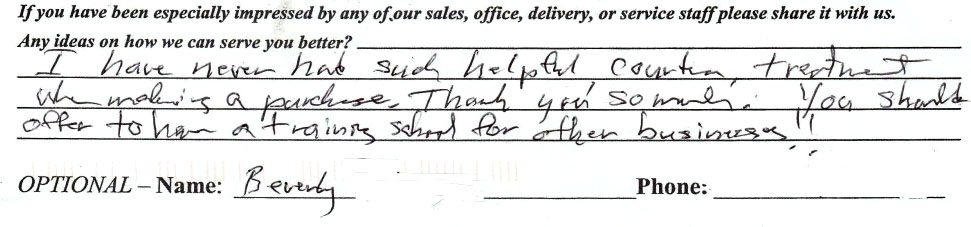 If you have been especially impressed by any of our sales, office, delivery, or service staff please share it with us.
Any ideas on how we can serve you better?
I have never had such helpful, courteous, treatment
when making a purchase. Thank you so much. You should
offer to have a training school for other businesses!!
OPTIONAL – Name: Beverly Phone: